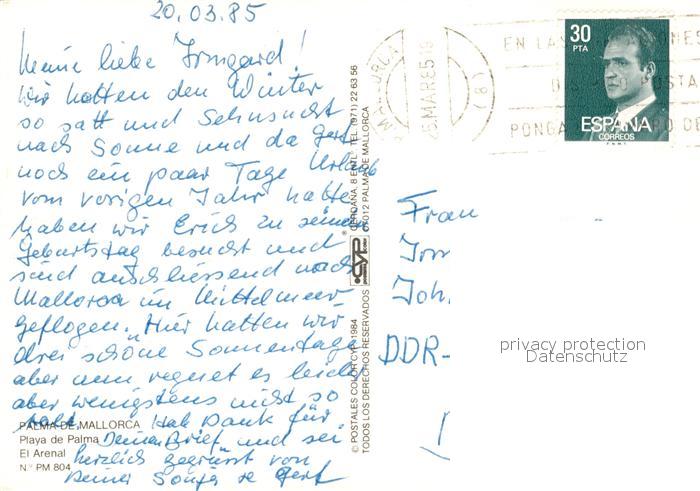 20.03.85
Meine liebe Irmgard!
Wir hatten den Winter
so satt und Sehnsucht
nach Sonne und da Gert
noch ein paar Tage Urlaub
vom vorigen Jahr hatte
haben wir Erich zu seinem
Geburtstag besucht und
sind anschliessend nach
Mallorca im Mittelmeer
geflogen. Hier hatten wir
drei schöne Sonnentage
aber nun regnet es leider
aber wenigstens nicht so
kalt. Hab Dank für
Deinen Brief und sei
herzlich gegrüsst von
Deiner Sonja + Gert
PALMA DE MALLORCA
Playa de Palma
El Arenal
N.º PM 804
© POSTALES COLOR CYP 1984
TODOS LOS DERECHOS RESERVADOS
CYP
CERDANA, 8 ENTL.º TEL. (971) 22 63 56
07012 PALMA DE MALLORCA
MALLORCA
MAR 85
(8)
EN LAS
PONGA
30
PTA
ESPAÑA
CORREOS
F.N.M.T.
Frau
Irm
Joh.
DDR-
privacy protection
Datenschutz